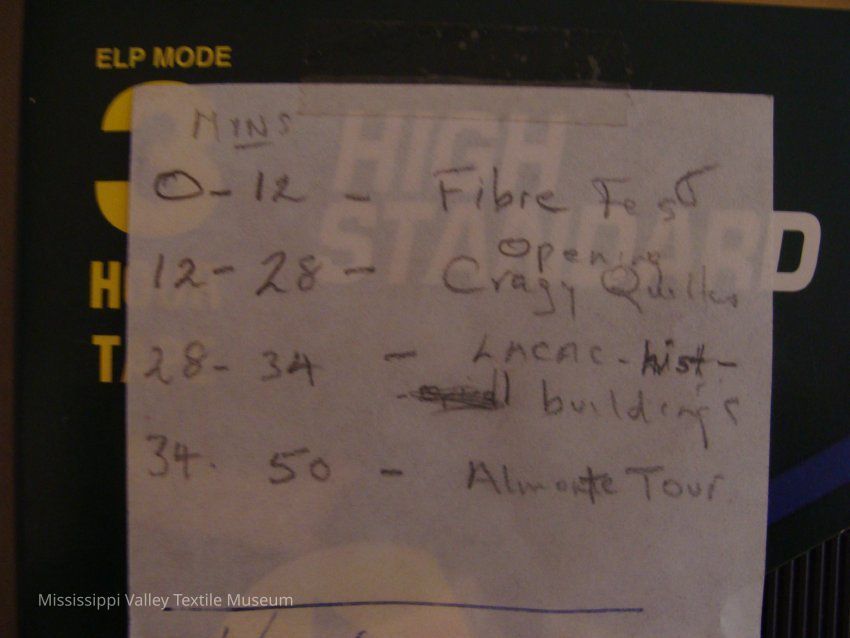 ELP MODE
3 HIGH
STANDARD
MINS
0-12 - Fibre Fest
Opening
12-28 - Crazy Quilters
28-34 - LACAC - hist-
buildings
34. 50 - Almonte Tour
Mississippi Valley Textile Museum